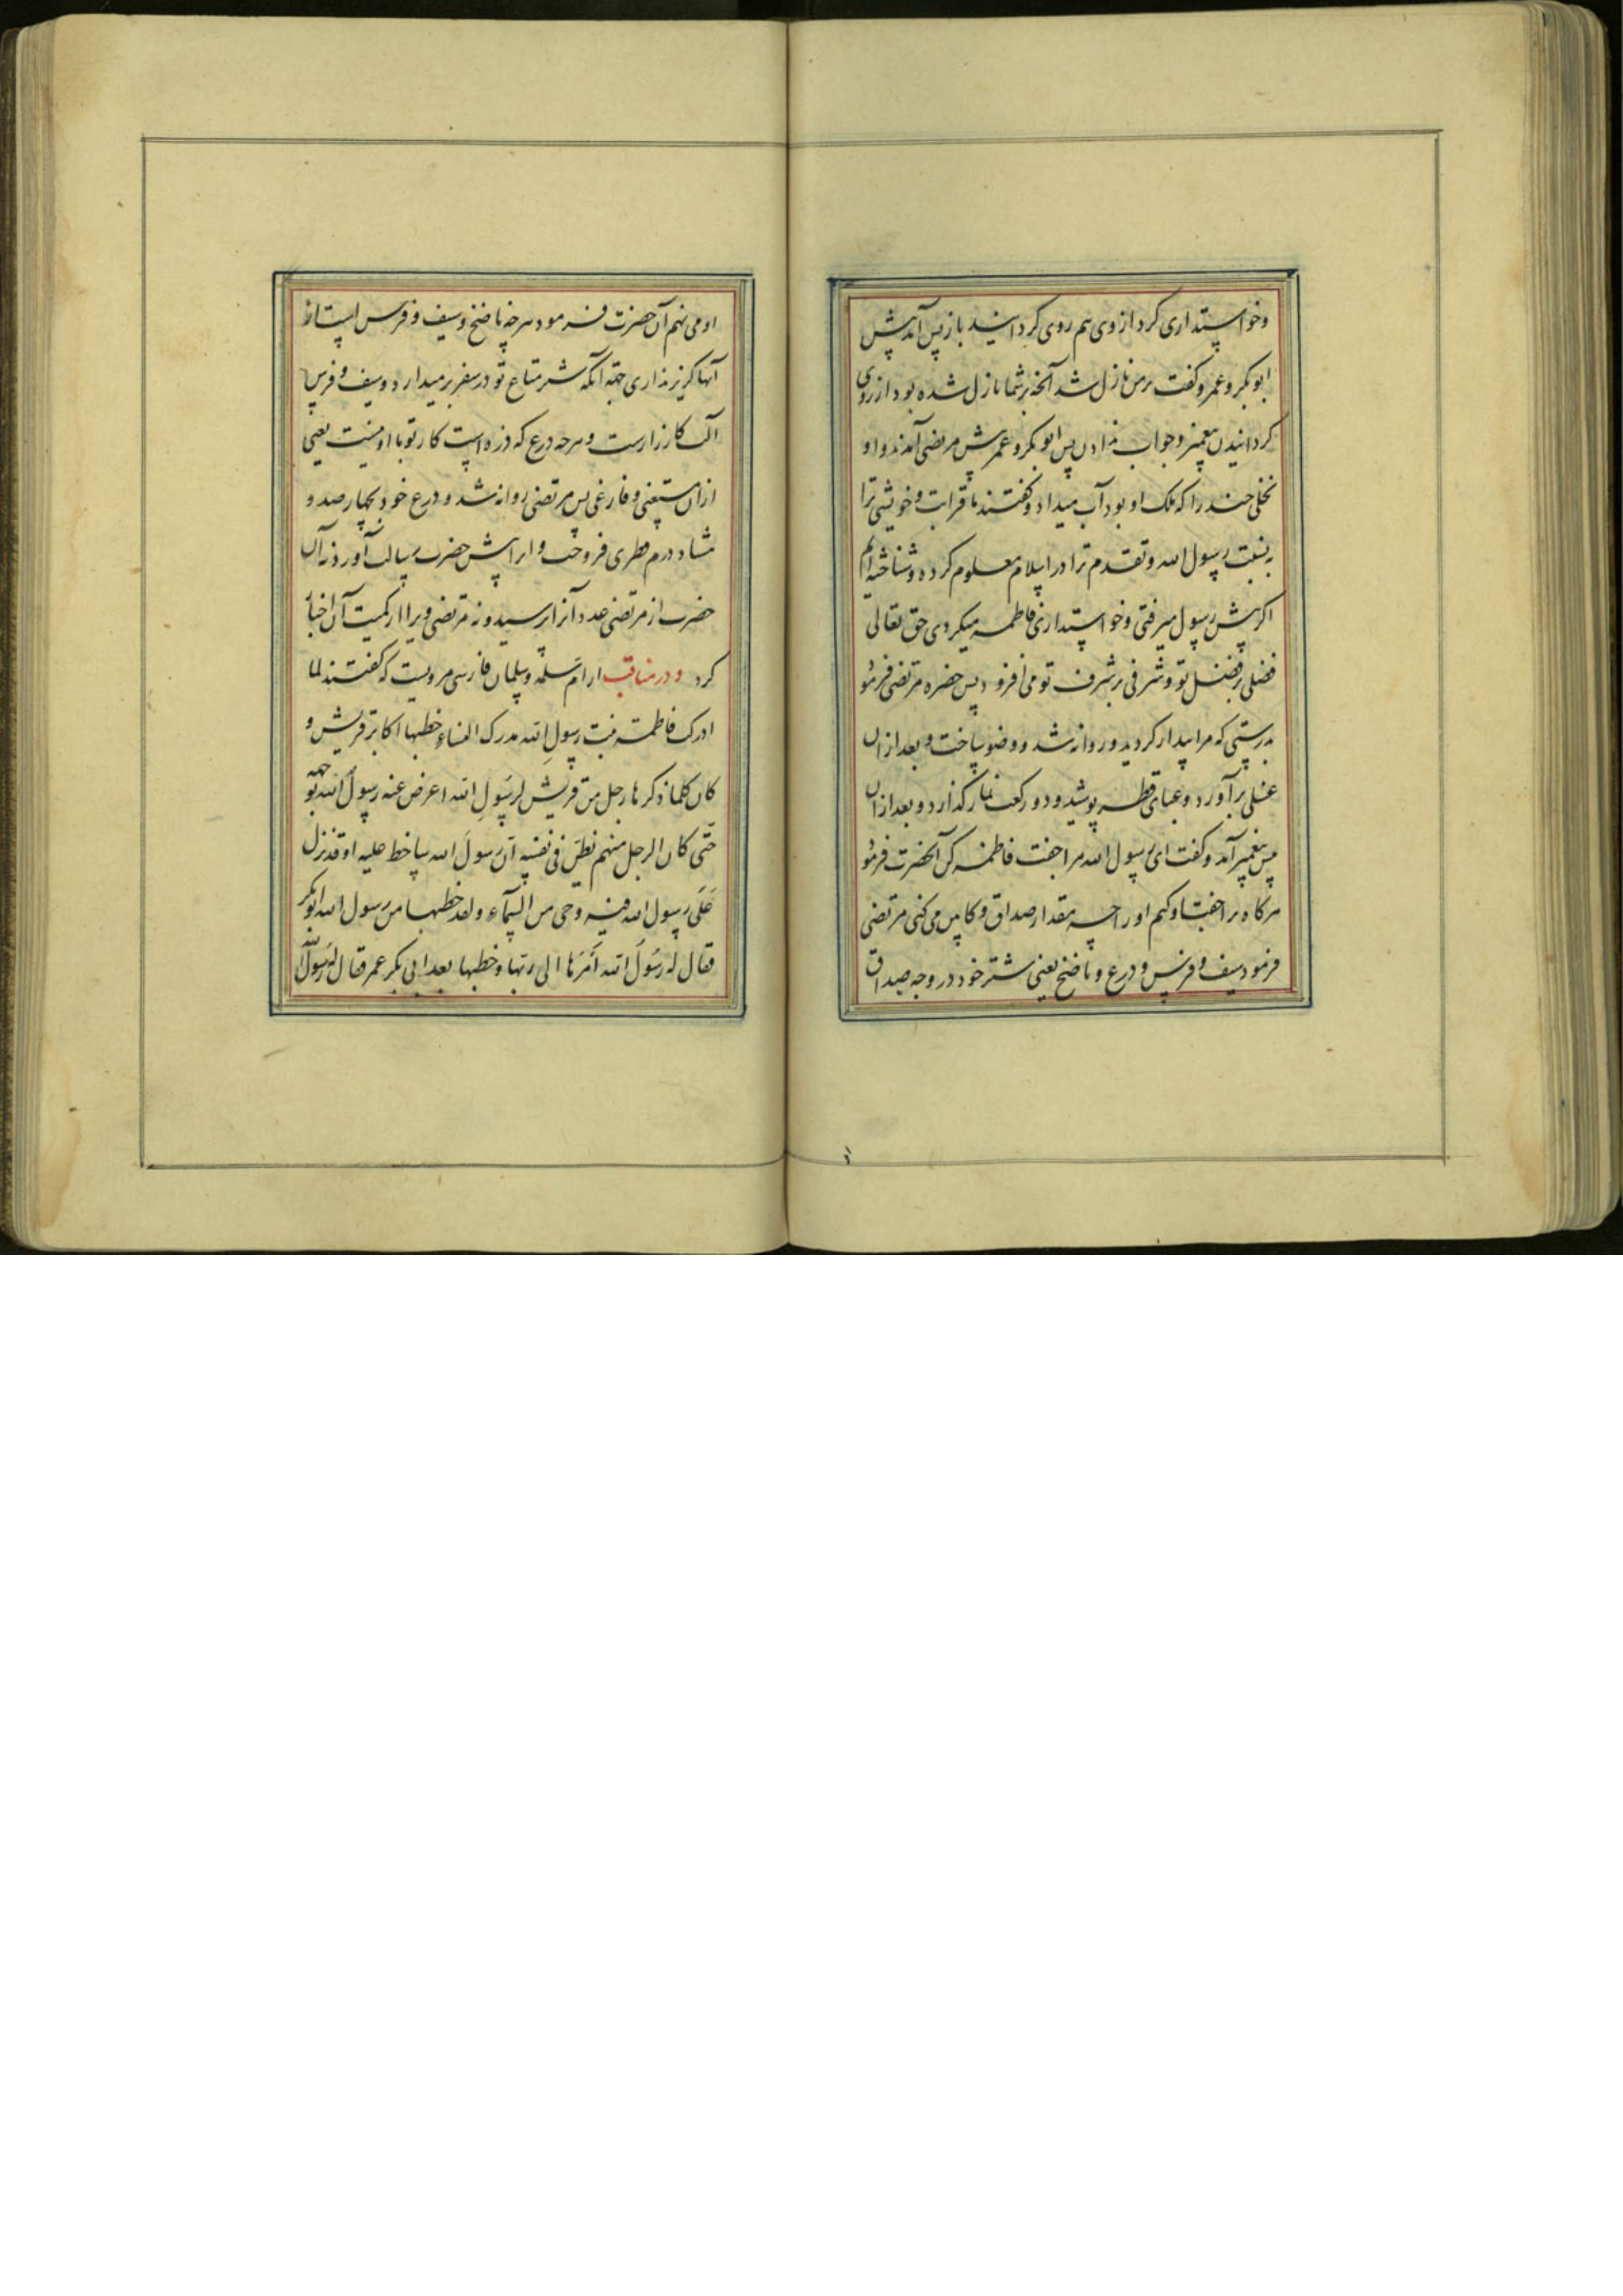 وخواستداری کرد از وی هم روی کردانید باز پس آمد پیش
ابو بکر و عمر و کفت بر من نازل شد آنچه بر شما نازل شده بود از روی
کردانیدن پیغمبر و جواب ندادن پس ابو بکر و عمر پیش مرتضی آمدند و او
نخلی چند را که ملک او بود آب میداد و کفتند ما قرابت و خویشی ترا
به نسبت رسول الله و تقدم ترا در اسلام معلوم کرده و شناخته‌ایم
اکر پیش رسول میرفتی و خواستداری فاطمه میکردی حق تعالی
فضلی بر فضل تو و شرفی بر شرف تو می افزود پس حضره مرتضی فرمود
بدرستی که مرا بیدار کردید و روانه شد و وضو ساخت و بعد از ان
غسلی برآورد و عبای قطریه پوشید و دو رکعت نماز کذارد و بعد از ان
پس پیغمبر آمد و کفت ای رسول الله مرا جفت فاطمه کن آنحضرت فرمود
هرکاه ترا جفت او کنم او را چه مقدار صداق و کابین می کنی مرتضی
فرمود سیف و فرس و درع و ناضح یعنی شتر خود در وجه صداق
او می نهم آن حضرت فرمود هرچه ناضح و سیف و فرس است از
آنها کزیر نداری جهة آنکه شتر متاع تو در سفر بر میدارد و سیف و فرس
آلت کارزارست و هرچه درع که زره است کار تو با او نیست یعنی
ازان مستغنی و فارغی پس مرتضی روانه شد و درع خود بچهارصد و
هشتاد درم قطری فروخت و او را پیش حضرت رسالت آورد نه آن
حضرت از مرتضی عدد آنرا پرسید و نه مرتضی ویرا از کمیت آن اخبار
کرد و در مناقب از ام سلمه و سلمان فارسی مرویست که کفتند لما
ادرک فاطمة بنت رسول الله مدرک النساء خطبها اکابر قریش و
کان کلما ذکرها رجل من قریش لرسول الله اعرض عنه رسول الله بوجهه
حتی کان الرجل منهم یظن فی نفسه ان رسول الله ساخط علیه او قد نزل
علی رسول الله فیه وحی من السماء و لقد خطبها من رسول الله ابو بکر
فقال له رسول الله امرها الی ربها و خطبها بعد ابی بکر عمر فقال له رسول الله